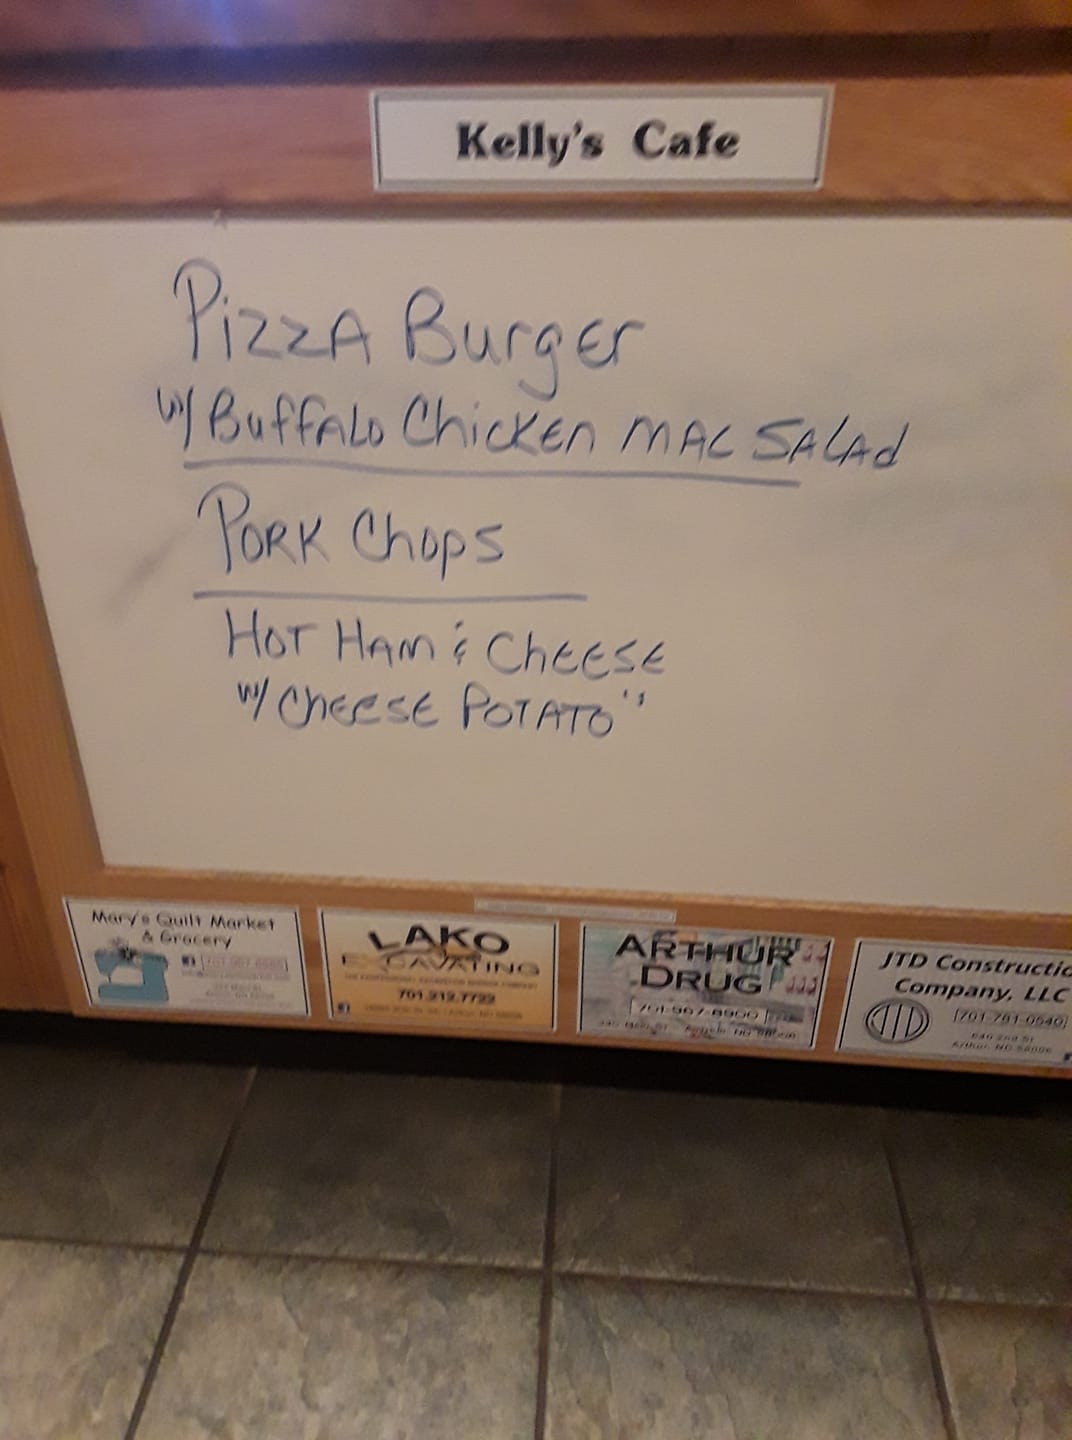 Kelly's Cafe
PizzA Burger
w/ BuffALo ChicKEn MAC SALAd
PORK Chops
HOT HAM & ChEESE
w/ ChEESE POTATO"
Mary's Quilt Market
& Grocery
LAKO
EXCAVATING
701.212.7722
ARTHUR
DRUG
701-967-8900
JTD Constructio
Company, LLC
701-781-0540
640 2nd St
Arthur, ND 58006